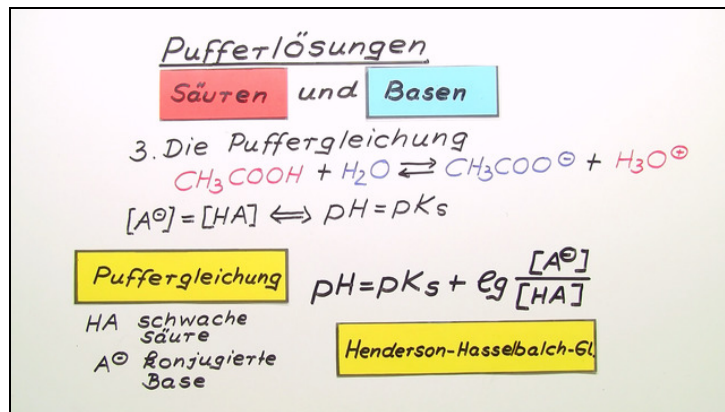 Pufferlösungen
Säuren und Basen
3. Die Puffergleichung
CH₃COOH + H₂O ⇄ CH₃COO⊖ + H₃O⊕
[A⊖] = [HA] ⟺ pH = pKs
Puffergleichung
pH = pKs + lg [A⊖]/[HA]
HA schwache
Säure
A⊖ konjugierte
Base
Henderson-Hasselbalch-Gl.